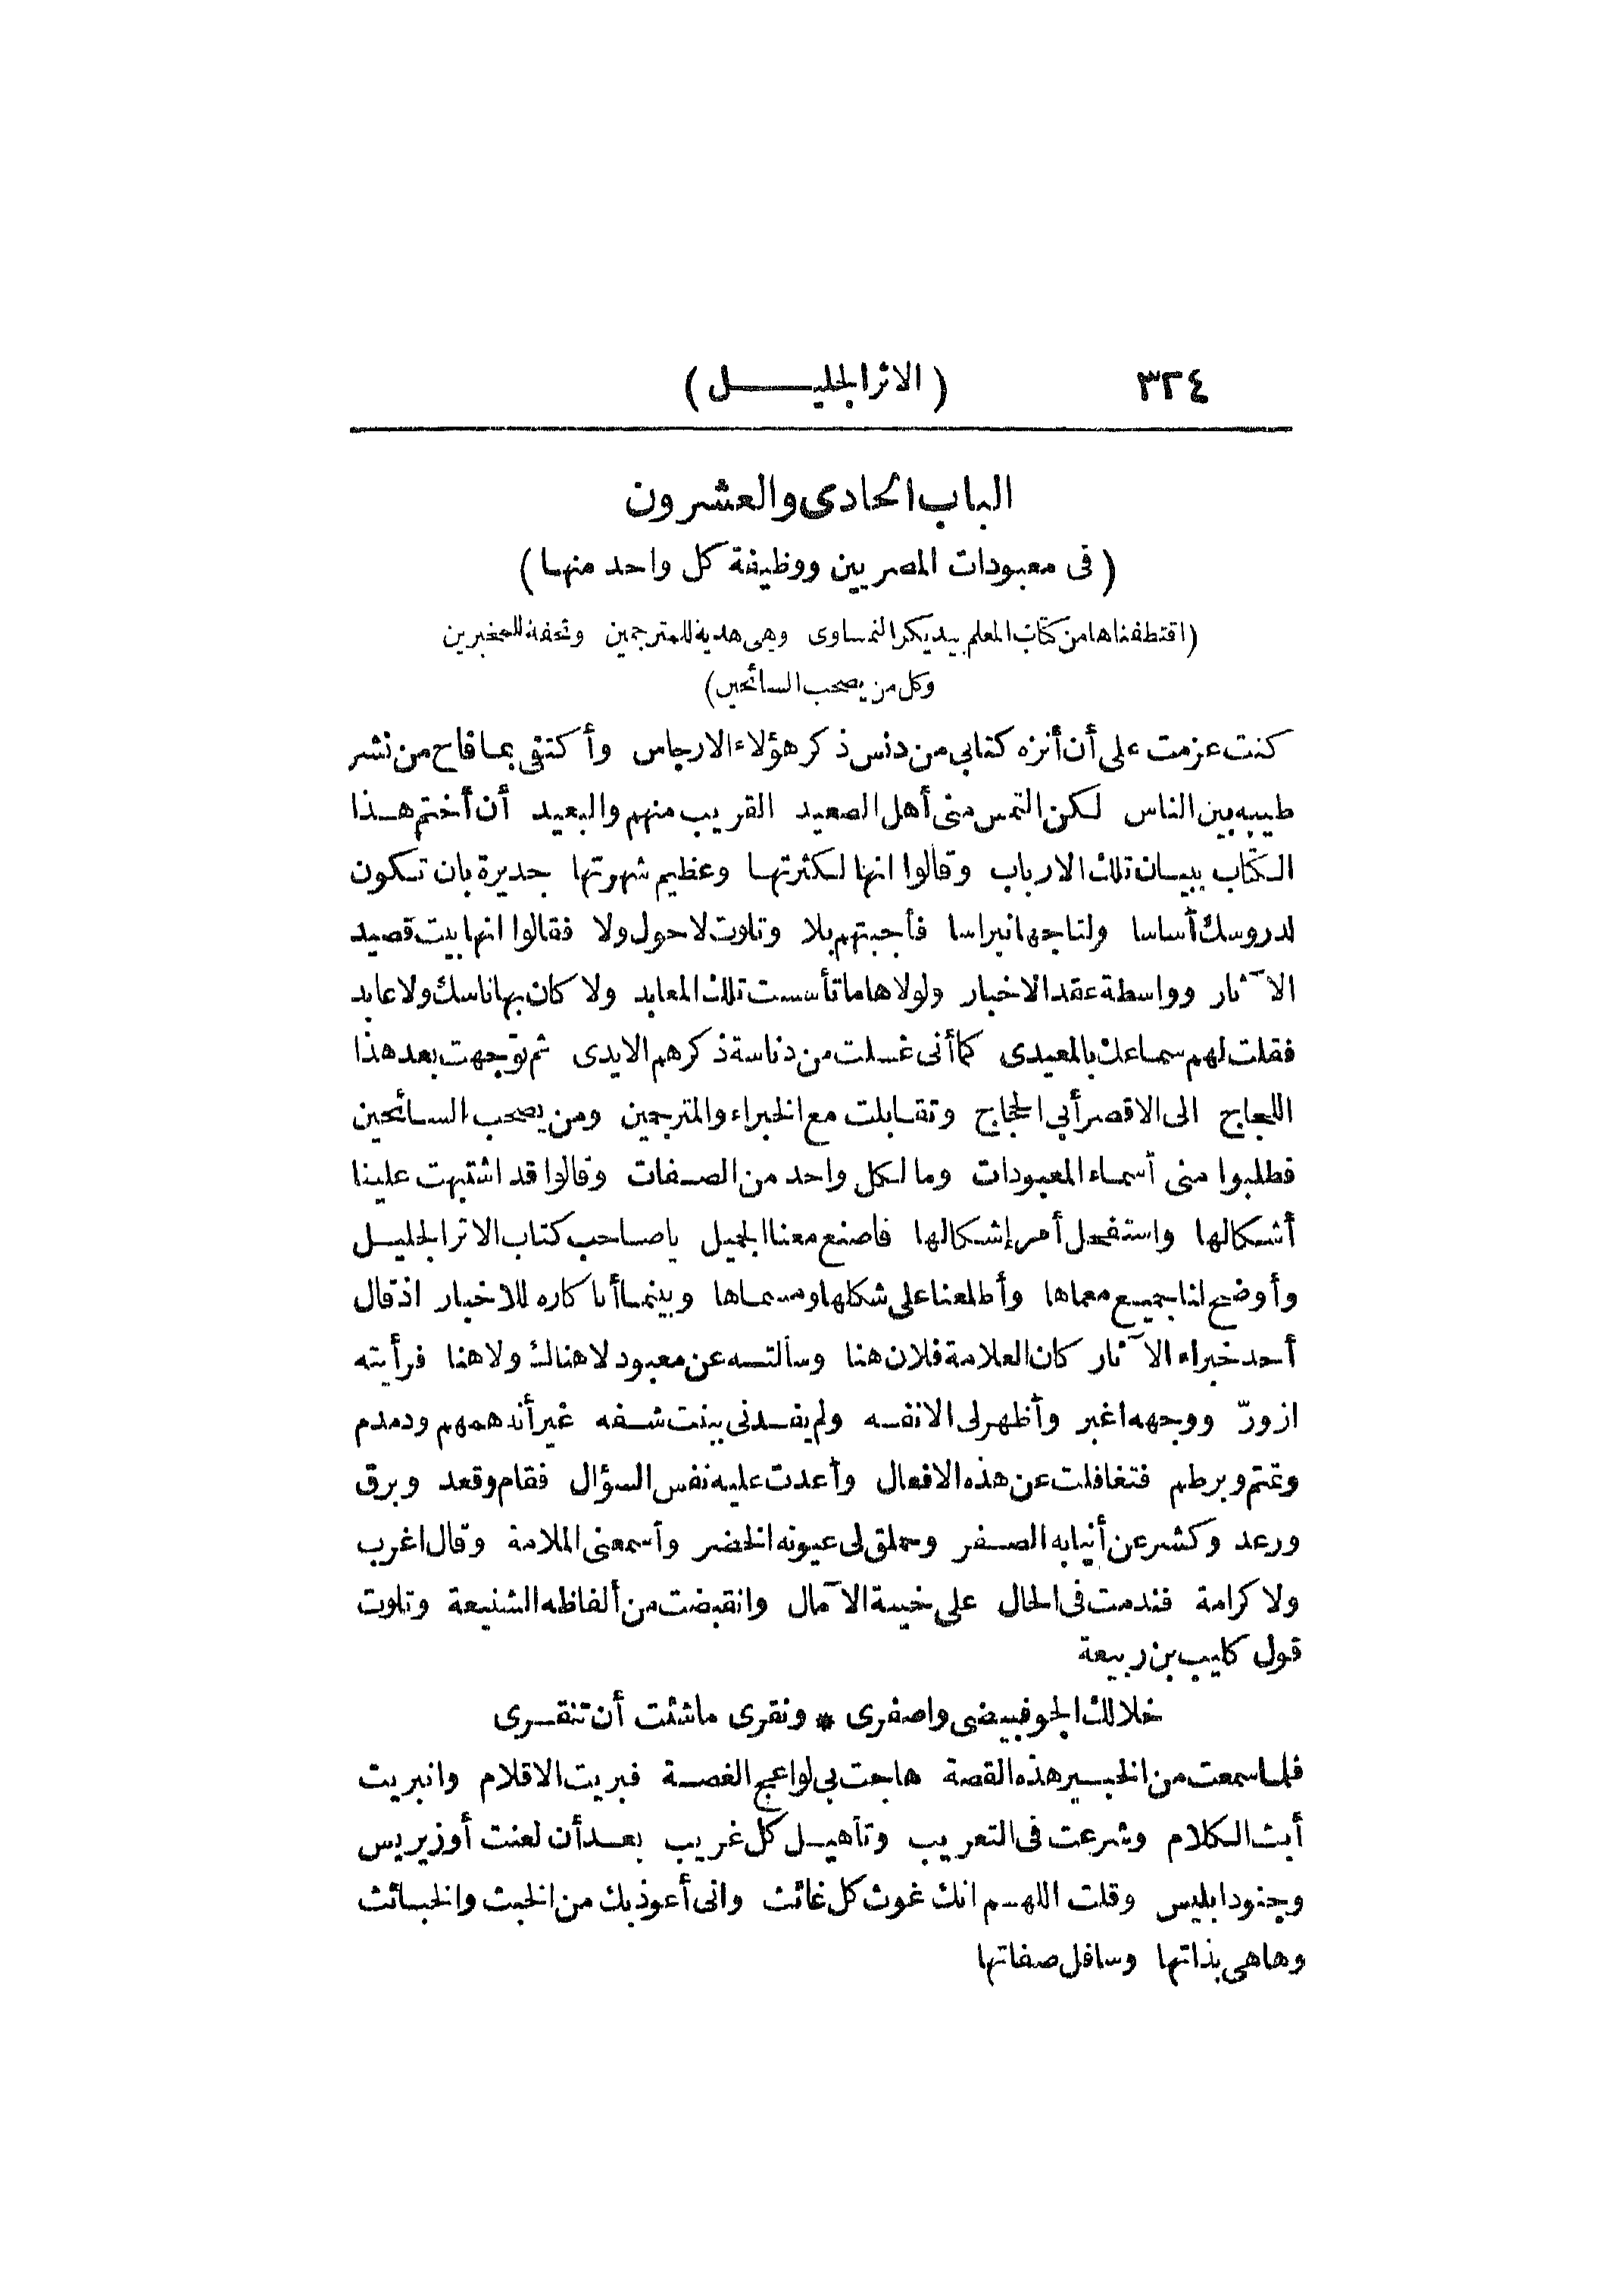 ٣٢٤
(الاثر الجليل)
الباب الحادى والعشرون
(فى معبودات المصريين ووظيفة كل واحد منها)
(اقتطفناها من كتاب المعلم بيديكر النمساوى وهى هدية للمترجمين وتحفة للمخبرين
وكل من يصحب السائحين)
كنت عزمت على أن أنزه كتابى من دنس ذكر هؤلاء الارجاس وأكتفى بما فاح من نشر
طيبه بين الناس لكن التمس منى أهل الصعيد القريب منهم والبعيد أن أختم هذا
الكتاب ببيان تلك الارباب وقالوا انها لكثرتها وعظيم شهرتها جديرة بان تكون
لدروسك أساسا ولتاجها نبراسا فأجبتهم بلا وتلوت لا حول ولا فقالوا انها بيت قصيد
الآثار وواسطة عقد الاخبار ولولاها ما تأسست تلك المعابد ولا كان بها ناسك ولا عابد
فقلت لهم سماعك بالمعيدى كما أنى غسلت من دناسة ذكرهم الايدى ثم توّجهت بعد هذا
اللجاج الى الاقصر أبى الحجاج وتقابلت مع الخبراء والمترجمين ومن يصحب السائحين
فطلبوا منى أسماء المعبودات وما لكل واحد من الصفات وقالوا قد اشتبهت علينا
أشكالها واستفحل أمر إشكالها فاصنع معنا الجميل ياصاحب كتاب الاثر الجليل
وأوضح لنا جميع معماها وأطلعنا على شكلها ومسماها وبينما أنا كاره للاخبار اذ قال
أحد خبراء الآثار كان العلامة فلان هنا وسألته عن معبود لا هنالك ولا هنا فرأيته
ازورّ ووجهه اغبر وأظهر لى الانفه ولم يفدنى ببنت شفه غير أنه همهم ودمدم
وتمتم وبرطم فتغافلت عن هذه الافعال وأعدت عليه نفس السؤال فقام وقعد وبرق
ورعد وكشر عن أنيابه الصفر وحملق لى عيونه الخضر وأسمعنى الملامة وقال اغرب
ولا كرامة فندمت فى الحال على خيبة الآمال وانقبضت من ألفاظه الشنيعة وتلوت
قول كليب بن ربيعة
خلالك الجو فبيضى واصفرى * ونقرى ماشئت أن تنقرى
فلما سمعت من الخبير هذه القصة هاجت بى لواعج الغصة فبريت الاقلام وانبريت
أبث الكلام وشرعت فى التعريب وتأهيل كل غريب بعد أن لعنت أوزيريس
وجنود ابليس وقلت اللهم انك غوث كل غائث وانى أعوذ بك من الخبث والخبائث
وها هى بذاتها وسافل صفاتها